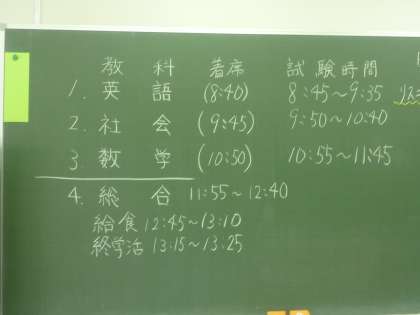 教科 着席 試験時間
1. 英語 (8:40) 8:45～9:35 リス
2. 社会 (9:45) 9:50～10:40
3. 数学 (10:50) 10:55～11:45
4. 総合 11:55～12:40
給食 12:45～13:10
終学活 13:15～13:25